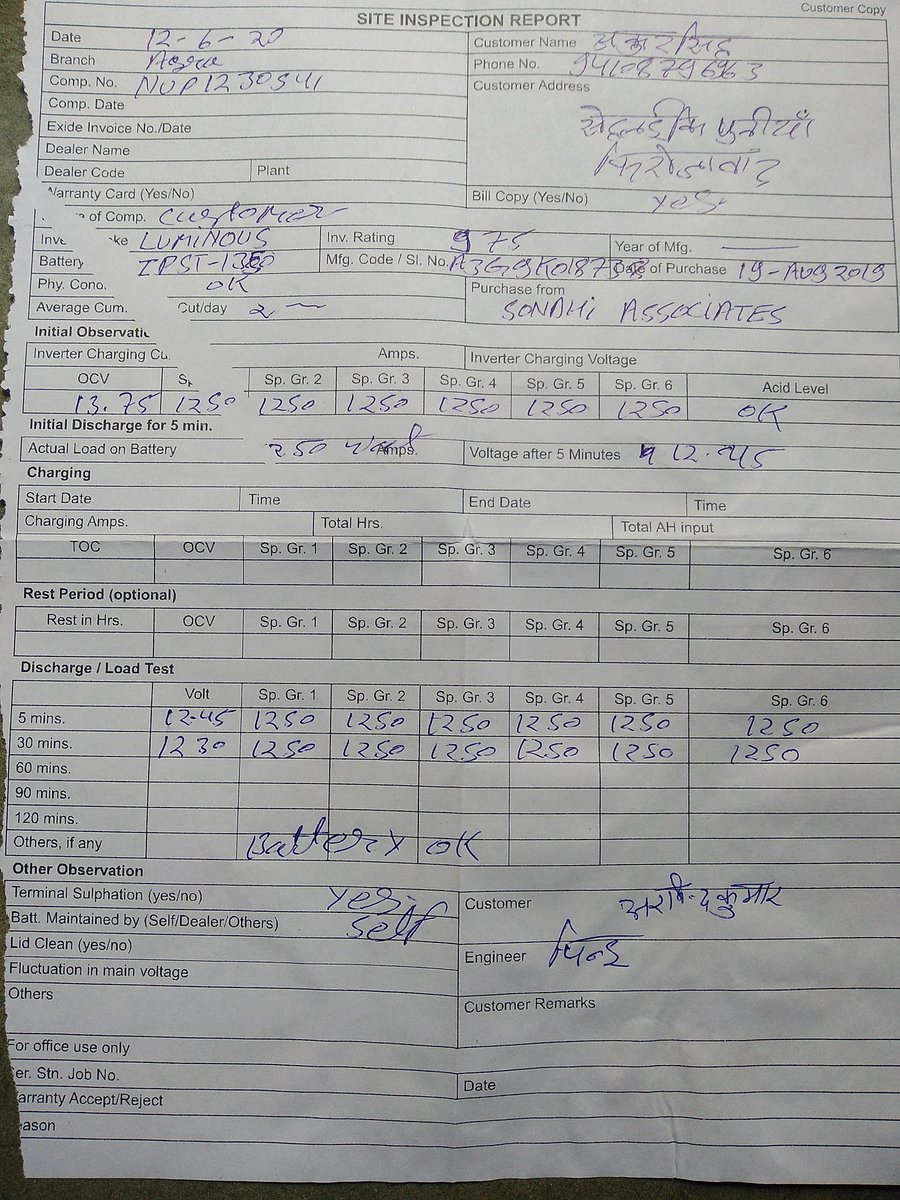 Customer Copy
SITE INSPECTION REPORT
Date 12-6-20
Customer Name सिंह
Branch Agra
Phone No.
Comp. No. NUP1230941
Customer Address
Comp. Date
Exide Invoice No./Date
Dealer Name
Dealer Code Plant
Warranty Card (Yes/No)
Bill Copy (Yes/No) yes.
of Comp. Customer
Inve ke LUMINOUS Inv. Rating 975 Year of Mfg. —
Battery Mfg. Code / Sl. No. Date of Purchase 19-AUG 2019
Phy. Cond. OK
Purchase from
SONDHI ASSOCIATES
Average Cum. Cut/day 2 —
Initial Observatio
Inverter Charging Cu Amps. Inverter Charging Voltage
OCV Sp Sp. Gr. 2 Sp. Gr. 3 Sp. Gr. 4 Sp. Gr. 5 Sp. Gr. 6 Acid Level
13.75 1250 1250 1250 1250 1250 1250 OK
Initial Discharge for 5 min.
Actual Load on Battery 250 Watt Amps. Voltage after 5 Minutes 12.45
Charging
Start Date Time End Date Time
Charging Amps. Total Hrs. Total AH input
TOC OCV Sp. Gr. 1 Sp. Gr. 2 Sp. Gr. 3 Sp. Gr. 4 Sp. Gr. 5 Sp. Gr. 6
Rest Period (optional)
Rest in Hrs. OCV Sp. Gr. 1 Sp. Gr. 2 Sp. Gr. 3 Sp. Gr. 4 Sp. Gr. 5 Sp. Gr. 6
Discharge / Load Test
Volt Sp. Gr. 1 Sp. Gr. 2 Sp. Gr. 3 Sp. Gr. 4 Sp. Gr. 5 Sp. Gr. 6
5 mins. 12.45 1250 1250 1250 1250 1250 1250
30 mins. 12 30 1250 1250 1250 1250 1250 1250
60 mins.
90 mins.
120 mins.
Others, if any Battery OK
Other Observation
Terminal Sulphation (yes/no) yes.
Customer कुमार
Batt. Maintained by (Self/Dealer/Others) self
Lid Clean (yes/no)
Engineer
Fluctuation in main voltage
Others
Customer Remarks
For office use only
er. Stn. Job No.
Date
arranty Accept/Reject
eason